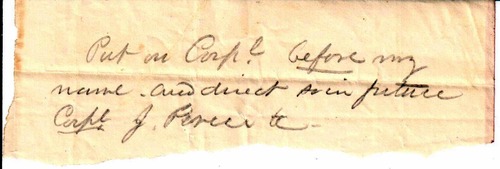 Put on Corpl. before my
name. and direct so in future
Corpl. J. Peirce &c